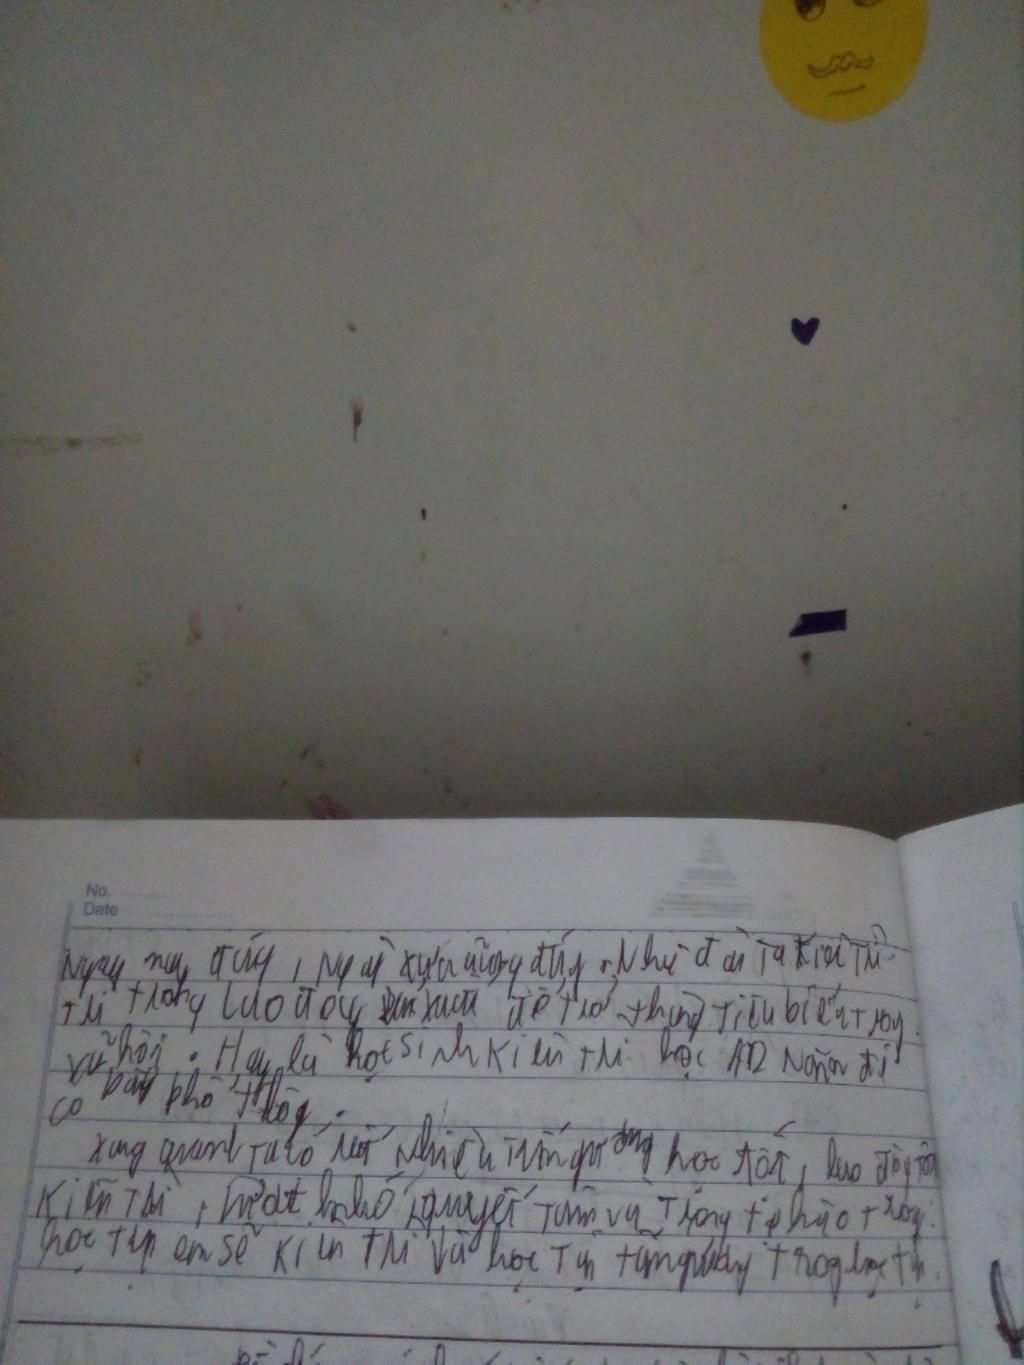 No.
Date
Ngày nay đúng, ngày xưa cũng đúng. Như đời ta kiên trì
trì trong lao động sản xuất để trở thành tiêu biểu trong
xã hội. Hay là học sinh kiên trì học 12 năm để
có bằng phổ thông.
Xung quanh ta có rất nhiều tấm gương học tốt, lao động tốt
kiên trì, quyết tâm và trong
học tập em sẽ kiên trì và học tập tấm gương trong học tập.